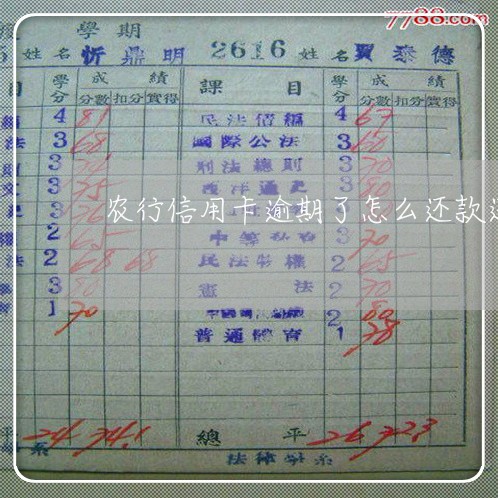 7788.com
學期
5 姓名 忻鼎明 2616 姓名 賈泰德
目 學分 成績 課目 學分 成績
分數 扣分 實得 分數 扣分 實得
4 81 民法債編 4 67
法 3 68 國際公法 3 60
3 刑法總則 3 70
3 75 西洋通史 3 80
农行信用卡逾期了怎么还款
3 76
權 2 65 3 70
法 2 68 68 民法物權 2 65
3 80 憲法 2 70
1 70 2 80
普通體育 1 78
平 24 74.1 總平 26 72.3
系 法律學系